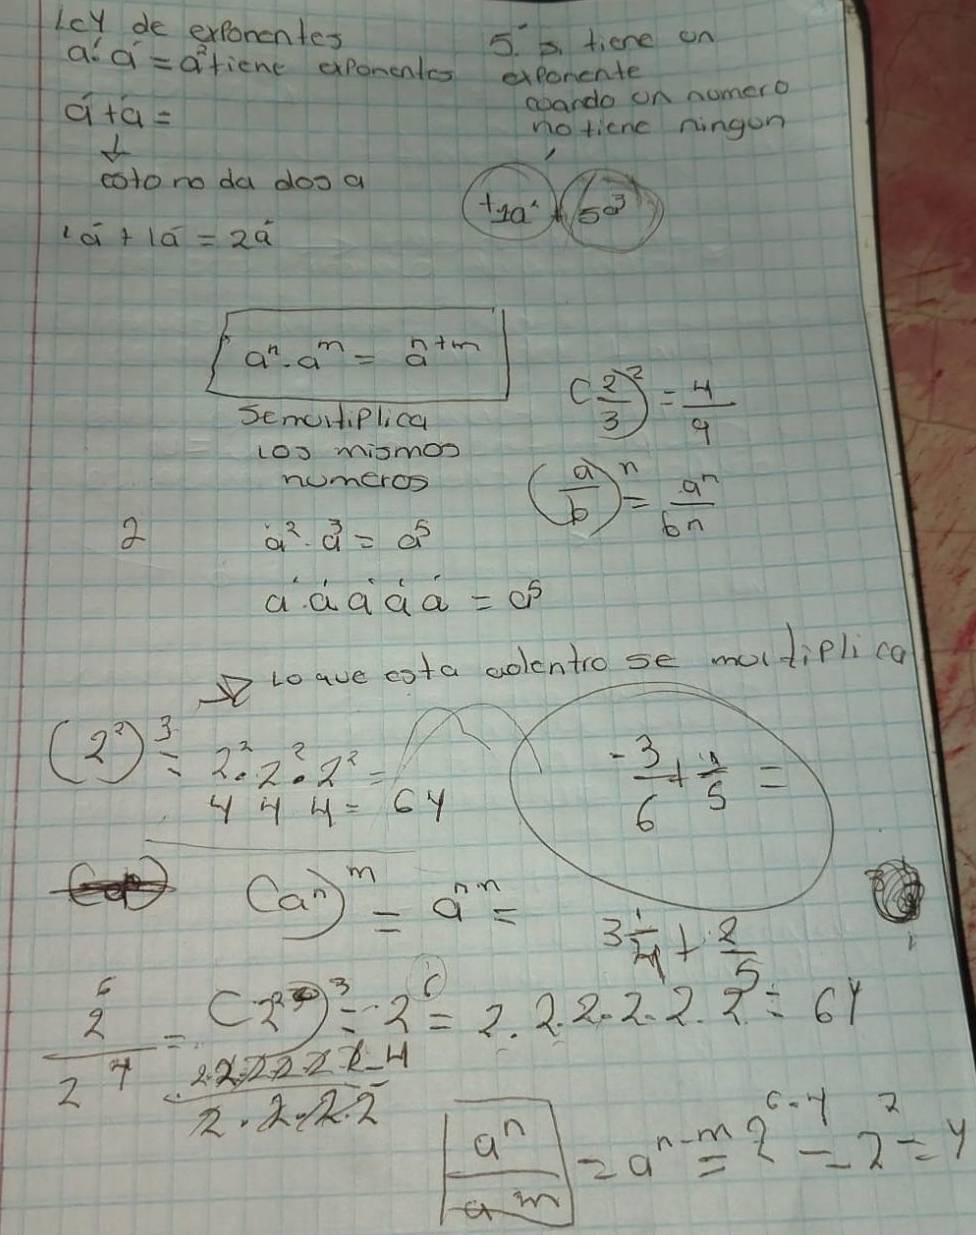 Ley de exponentes
a¹·a¹ = a² tiene exponentes
a¹ + a¹ =
↓
esto no da dos a
1a¹ + 1a¹ = 2a¹
5. si tiene un
exponente
cuando un numero
no tiene ningun
+1a¹ + 5a³
aⁿ · aᵐ = aⁿ⁺ᵐ
Se multiplica
los mismos
numeros
(2/3)² = 4/9
(a/b)ⁿ = aⁿ/bn
2
a² · a³ = a⁵
a¹ · a¹ a¹ a¹ a¹ = a⁵
→ Lo que esta adentro se multiplica
(2²)³ = 2² · 2 ² · 2² =
4 4 4 = 64
-3/6 + 1/5 =
(aⁿ)ᵐ = aⁿᵐ =
3 1/4 + 2/5
2⁶/2⁴ = (2²)³ = 2⁶ = 2 . 2 . 2 . 2 . 2 . 2 = 64
2.2.2.2.2.2 = 4
2 . 2 . 2 . 2
aⁿ/aᵐ = aⁿ⁻ᵐ = 2⁶⁻⁴ = 2² = 4